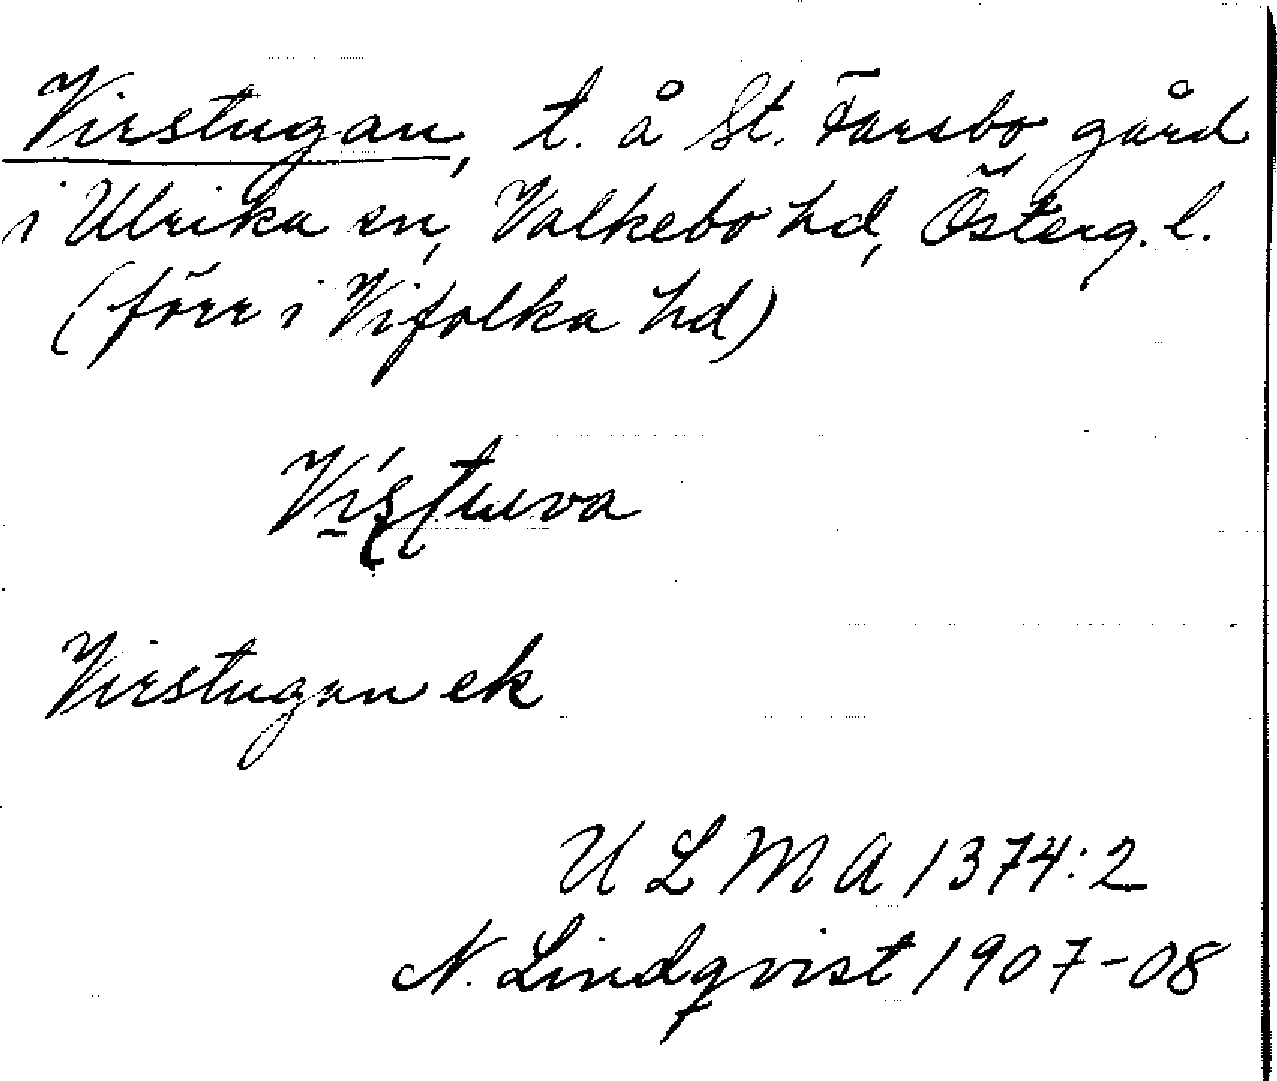 Virstugan, t. å St. Farsbo gård
i Ulrika sn, Valkebo hd, Österg. l.
(förr i Vifolka hd)
Virstugan ek
ULMA 1374:2
N. Lindqvist 1907-08